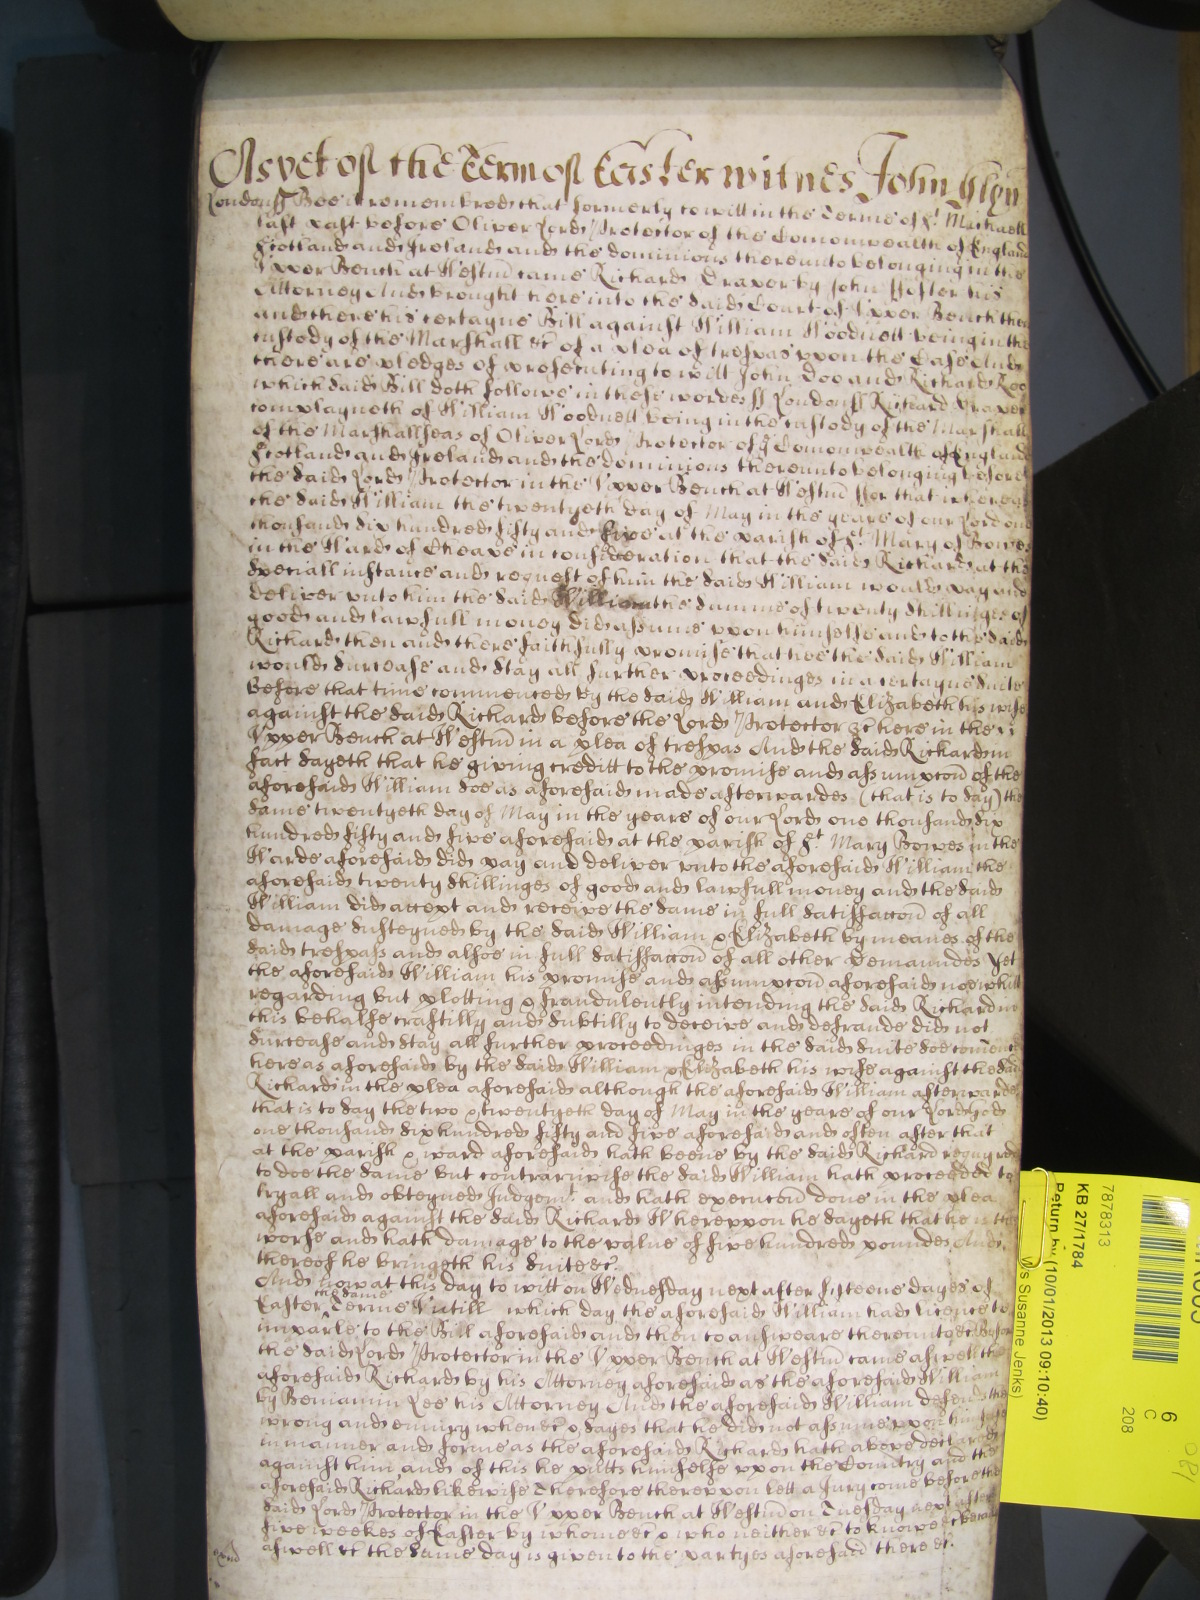 As yet of the Term of Easter witnes John Glyn
London ss Bee it remembred that formerly to witt in the Terme of St Michaell
last past before Oliver Lord Protector of the Comonwealth of England
Scotland and Ireland and the dominions thereunto belonging in the
Upper Bench at Westm came Richard Draper by John his
Attorney And brought here into the said Court of Upper Bench then
and there his certayne Bill against William Woodnett being in the
custody of the Marshall &c of a plea of trespas uppon the Case And
there are pledges of prosecuting to witt John Doo and Richard Roo
which said Bill doth followe in these wordes ss London ss Richard Draper
complayneth of William Woodnett being in the custody of the Marshall
of the Marshallseas of Oliver Lord Protector of ye Comonwealth of England
Scotland and Ireland and the dominions thereunto belonging before
the said Lord Protector in the Upper Bench at Westm For that whereas
the said William the twentyeth day of May in the yeare of our Lord one
thousand six hundred fifty and five at the parish of St Mary of Bowes
in the Ward of Cheape in consideration that the said Richard at the
speciall instance and request of him the said William would pay and
deliver unto him the said William the summe of twenty shillinges of
good and lawfull money did assume uppon himselfe and to the said
Richard then and there faithfully promise that hee the said William
would surcease and stay all further proceedinges in a certayne suite
before that time commenced by the said William and Elizabeth his wife
against the said Richard before the Lord Protector &c here in the
Upper Bench at Westm in a plea of trespas And the said Richard in
fact sayeth that he giving creditt to the promise and assumpcon of the
aforesaid William soe as aforesaid made afterwardes (that is to say) the
same twentyeth day of May in the yeare of our Lord one thousand six
hundred fifty and five aforesaid at the parish of St Mary Bowes in the
Warde aforesaid did pay and deliver unto the aforesaid William the
aforesaid twenty shillinges of good and lawfull money and the said
William did accept and receive the same in full satisfaccon of all
damage susteyned by the said William & Elizabeth by meanes of the
said trespass and alsoe in full satisfaccon of all other demaundes Yet
the aforesaid William his promise and assumpcon aforesaid not
regarding but plotting & fraudulently intending the said Richard in
this behalfe craftilly and subtilly to deceive and defraude did not
surcease and stay all further proceedinges in the said suite soe comenced
here as aforesaid by the said William & Elizabeth his wife against the said
Richard in the plea aforesaid although the aforesaid William afterwardes
that is to say the two & twentyeth day of May in the yeare of our Lord God
one thousand six hundred fifty and five aforesaid and often after that
at the parish & ward aforesaid hath beene by the said Richard requyred
to doe the same but contrariwise the said William hath proceeded to
tryall and obteyned Judgemt and hath execucon done in the plea
aforesaid against the said Richard Whereuppon he sayeth that he is the
worse and hath damage to the value of five hundred poundes And
thereof he bringeth his suite &c.
And now at this day to witt on Wednesday next after fifteene dayes of
Easter the same Terme Untill which day the aforesaid William had licence to
imparle to the Bill aforesaid and then to answeare thereunto &c Before
the said Lord Protector in the Upper Bench at Westm came aswell the
aforesaid Richard by his Attorney aforesaid as the aforesaid William
by Beniamin Lee his Attorney And the aforesaid William defends the
wrong and eniury when &c & sayes that he did not assume uppon himselfe
in manner and forme as the aforesaid Richard hath above declared
against him and of this he putts himselfe uppon the Countrey and the
aforesaid Richard likewise Therefore thereuppon lett a Jury come before the
said Lord Protector in the Upper Bench at Westm on Tuesday next after
five weekes of Easter by whome &c & who neither &c to knowe &c because
aswell &c the same day is given to the partyes aforesaid there &c.
7878313
KB 27/1784
Return by (10/01/2013 09:10:40)
Ms Susanne Jenks)
6
C
208